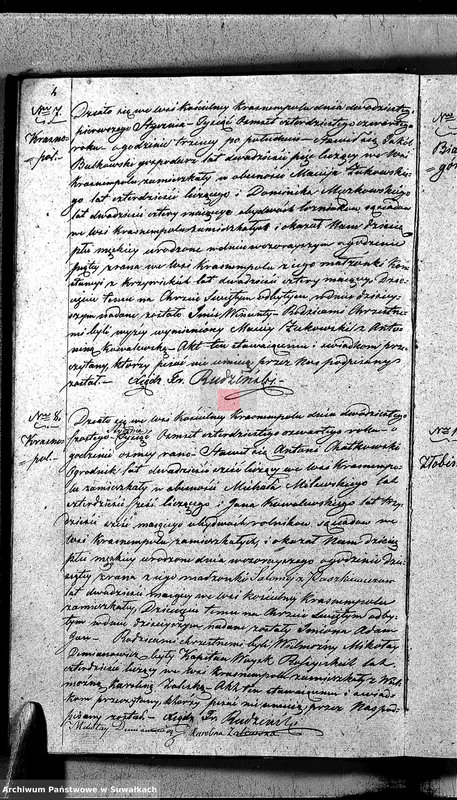 4
Nro 7
Krasno-
pol.
Działo się we wsi kościelny Krasnempolu dnia dwudziestego
pierwszego Stycznia Tysiąc Osmset czterdziestego czwartego
roku o godzinie trzeciej po południu Stawił się
Bułkowski gospodarz lat dwadzieścia pięć liczący we wsi
Krasnempolu zamieszkały w obecności Macieja Żukowskie-
go lat czterdzieści liczącego i Dominika Myszkowskiego
lat dwadzieścia cztery mającego obydwóch
we wsi Krasnempolu zamieszkałych i okazał Nam dziecię
płci męskiej urodzone w dniu wczorajszym o godzinie
piątej z rana we wsi Krasnempolu z jego małżonki Kon-
stancyi z Krzywickich lat dwadzieścia cztery mającej Dzie-
cięciu temu na Chrzcie Świętym odbytym w dniu dzisiej-
szym nadane zostało Imię Wincenty Rodzicami Chrzestne-
mi byli wyżej wymieniony Maciej Żukowski z Anto-
niną Kowalewską Akt ten stawającemu i świadkom prze-
czytany, którzy pisać nie umieją przez Nas podpisany
został. Xiądz Fr. Rudziński
Nro 8.
Krasno-
pol.
Działo się we wsi kościelny Krasnempolu dnia dwudziestego
Stycznia
Tysiąc Osmset czterdziestego czwartego roku o
godzinie ósmej rano Stawił się Antoni Chatkowski
Ogrodnik lat dwadzieścia sześć liczący we wsi Krasnempo-
lu zamieszkały w obecności Michała Milewskiego lat
czterdzieści pięć liczącego i Jana Kowalewskiego lat trzy-
dzieści sześć mającego obydwóch rolników, sąsiadów we
wsi Krasnempolu zamieszkałych, i okazał Nam dziecię
płci męskiej urodzone dnia wczorajszego o godzinie dzie-
siątej z rana z jego małżonki Salomei z Paszkiewiczów
lat dwadzieścia mającej we wsi kościelny Krasnempolu
zamieszkałej, Dziecięciu temu na Chrzcie Świętym odby-
tym w dniu dzisiejszym nadane zostały Imiona Adam
Rodzicami chrzestnemi byli Wielmożny Mikołaj
Demianowicz były Kapitan Wojsk Rosyjskich lat
czterdzieści liczący we wsi Krasnempolu zamieszkały z Wiel-
możną Karoliną Zalewską Akt ten stawającemu i świad-
kom przeczytany, którzy pisać nie umieją przez Nas pod-
pisany został Xiądz Fr. Rudziński
Mikołaj Demianowicz Karolina Zalewska
Nro
Nro 1
Archiwum Państwowe w Suwałkach